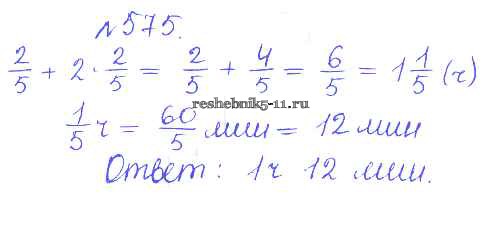 №575.
2/5 + 2 · 2/5 = 2/5 + 4/5 = 6/5 = 1 1/5 (ч)
reshebnik5-11.ru
1/5 ч = 60/5 мин = 12 мин
Ответ: 1ч 12 мин.